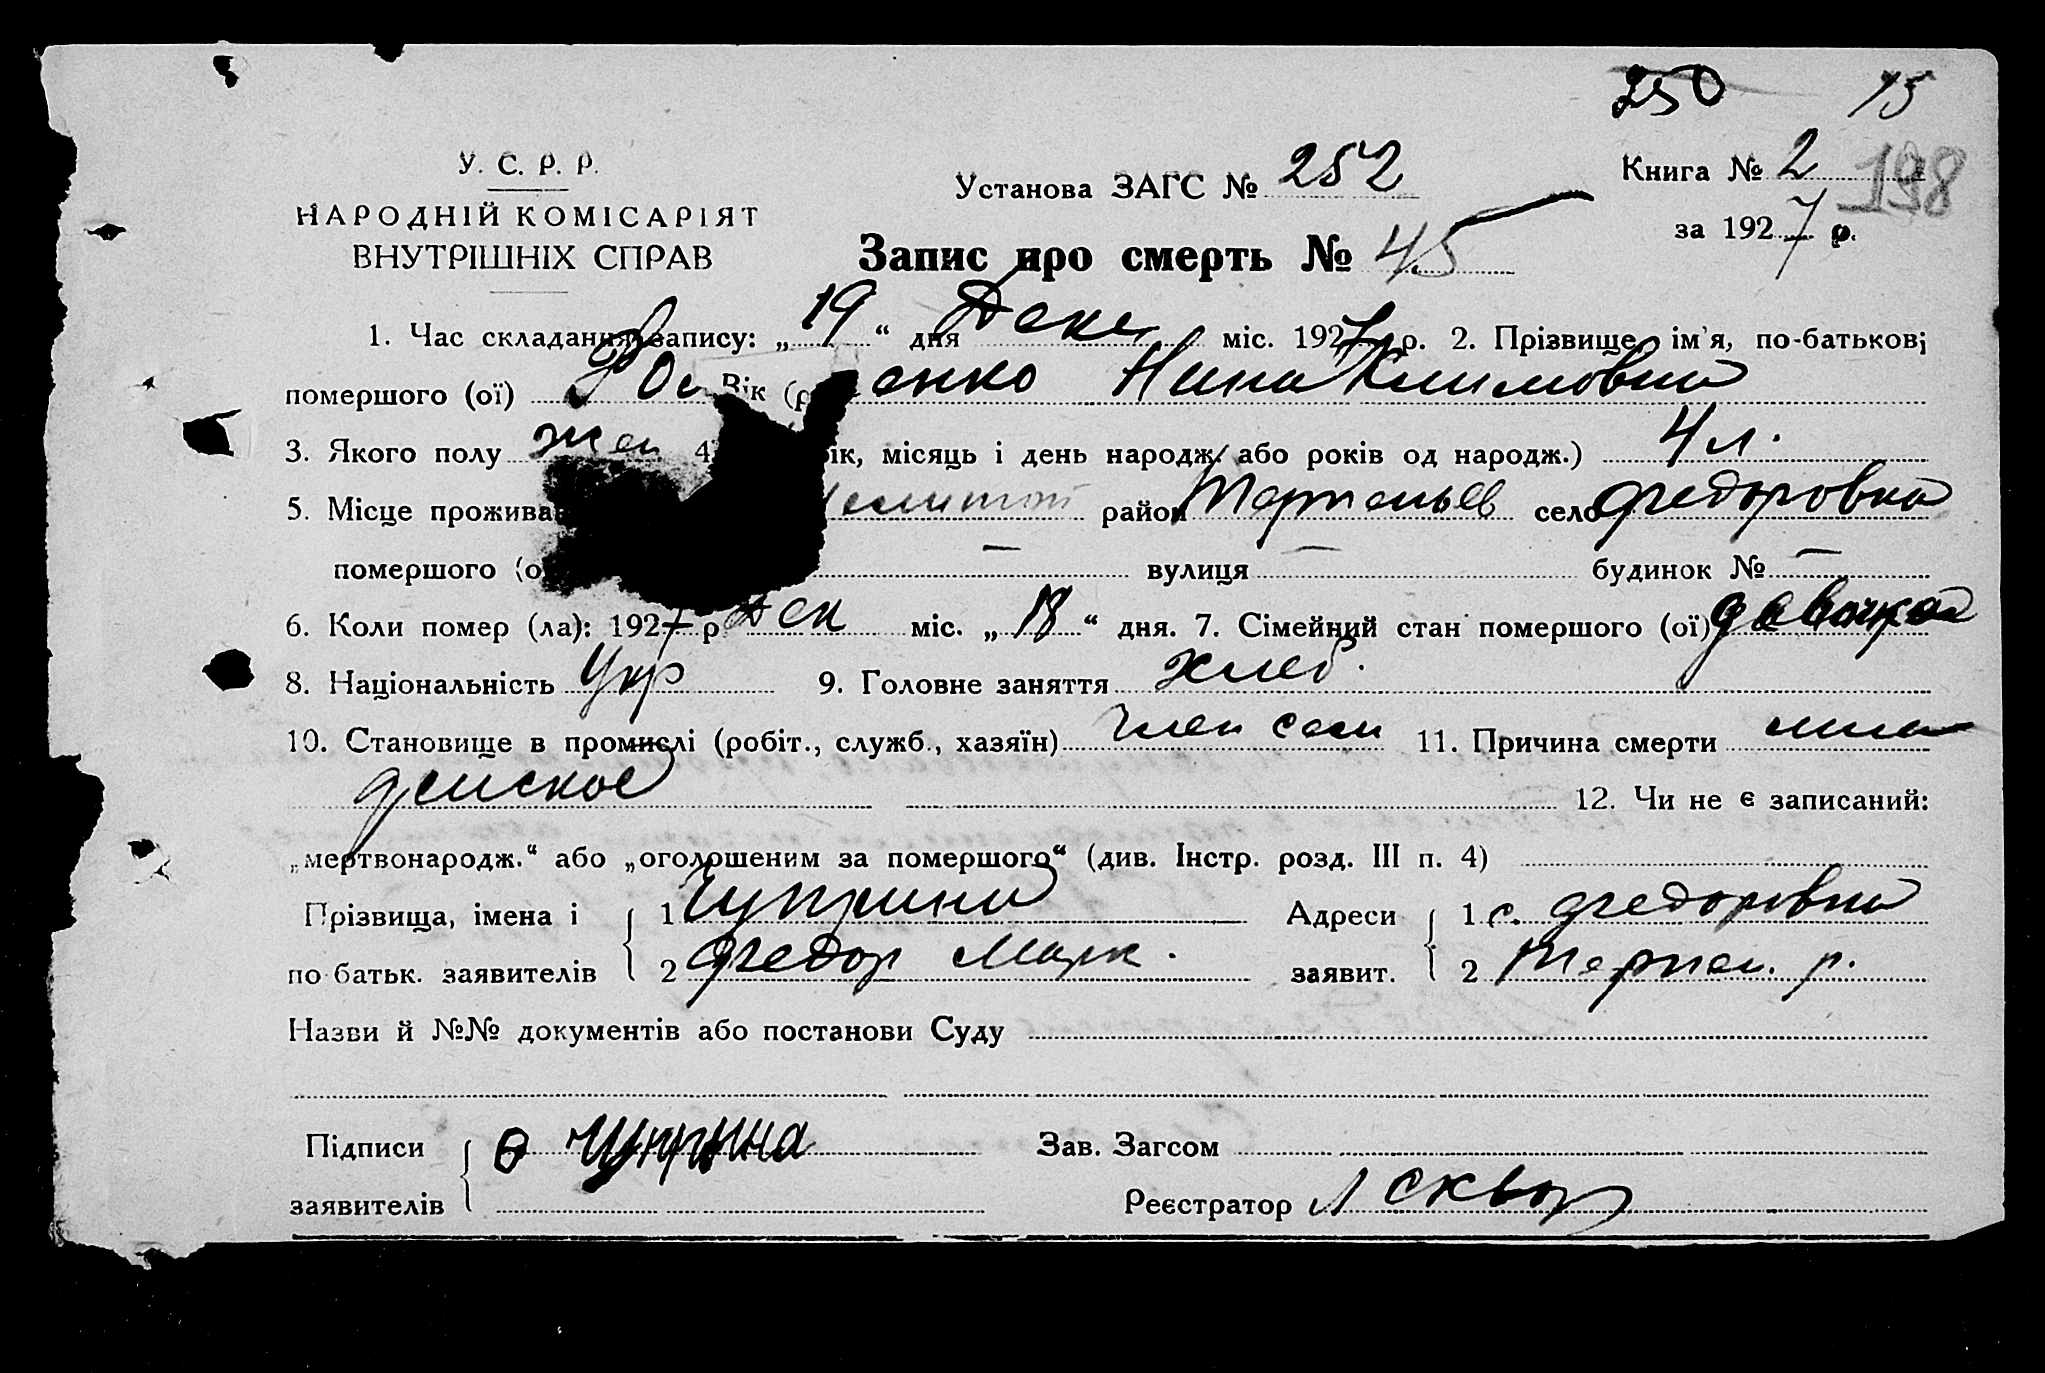 250 15
У. С. Р. Р.
НАРОДНІЙ КОМІСАРІЯТ
ВНУТРІШНІХ СПРАВ
Установа ЗАГС № 252
Книга № 2 198
за 1927 р.
Запис про смерть № 45
1. Час складання запису: „19“ дня Дек міс. 1927 р. 2. Прізвище, ім'я, по-батькові
померлого (ої) енко Нина Климовна
Вік (р
3. Якого полу жен 4 ік, місяць і день народж. або років од народж.) 4 л.
5. Місце прожива район село Федоровка
помершого (о — вулиця — будинок № —
6. Коли помер (ла): 1927 р. Дек міс. „18“ дня. 7. Сімейний стан помершого (ої) девочка
8. Національність Укр 9. Головне заняття хлеб.
10. Становище в промислі (робіт., служб., хазяїн) член сем 11. Причина смерти
12. Чи не є записаний:
„мертвонародж.“ або „оголошеним за помершого“ (див. Інстр. розд. III п. 4)
Прізвища, імена і 1 Чуприна Адреси 1 с. Федоровка
по батьк. заявителів 2 Федор Марк. заявит. 2 р.
Назви й №№ документів або постанови Суду
Підписи Ө Чуприна Зав. Загсом
заявителів Реєстратор